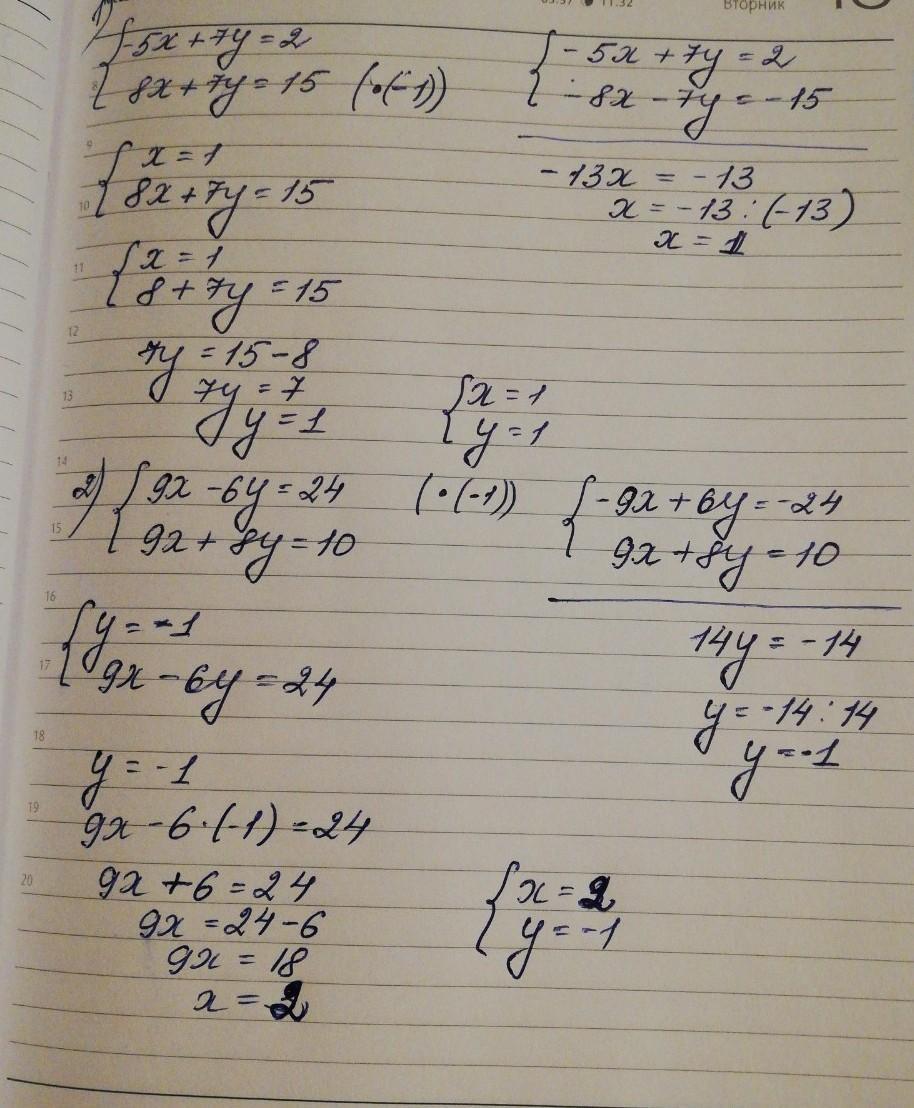 11.32 Вторник
1)
-5x + 7y = 2
8 8x + 7y = 15 (·(-1))
-5x + 7y = 2
-8x - 7y = -15
-13x = -13
x = -13 : (-13)
x = 1
9 x = 1
10 8x + 7y = 15
11 x = 1
8 + 7y = 15
12
7y = 15 - 8
13 7y = 7
y = 1
x = 1
y = 1
14
2) 9x - 6y = 24 (·(-1))
15 9x + 8y = 10
-9x + 6y = -24
9x + 8y = 10
14y = -14
y = -14 : 14
y = -1
16
y = -1
17 9x - 6y = 24
18
y = -1
19
9x - 6·(-1) = 24
20 9x + 6 = 24
9x = 24 - 6
9x = 18
x = 2
x = 2
y = -1